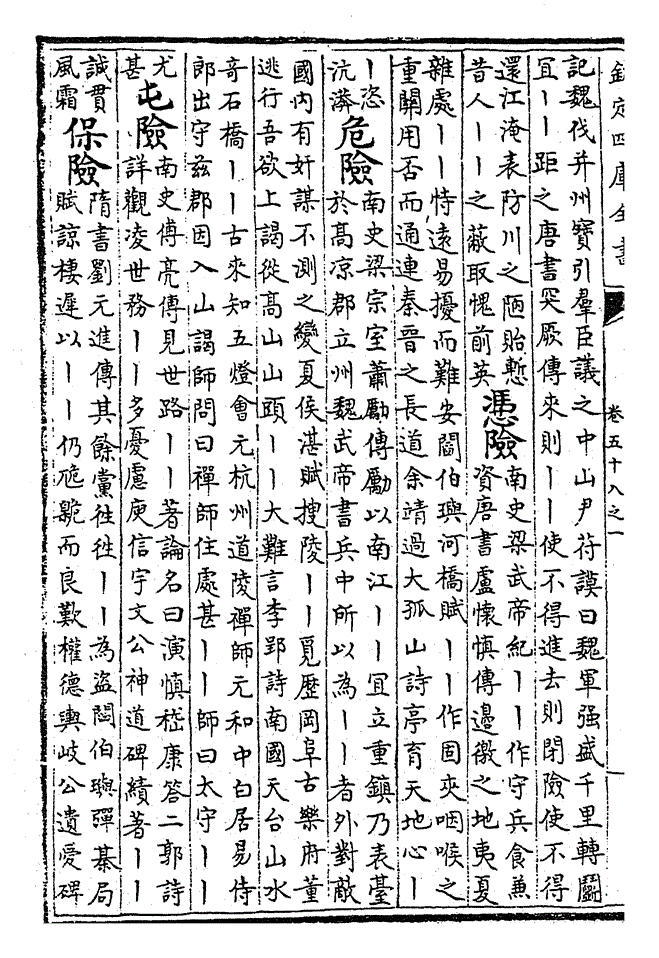 欽定四庫全書
卷五十八之一
記魏伐并州寶引羣臣議之中山尹苻謨曰魏軍强盛千里轉鬭
宜丨丨距之唐書突厥傳來則丨丨使不得進去則閉險使不得
還江淹表防川之陋貽慙
昔人丨丨之蔽取愧前英
憑險
南史梁武帝紀丨丨作守兵食兼
資唐書盧懷慎傳邊徼之地夷夏
雜處丨丨恃遠易擾而難安閻伯璵河橋賦丨丨作固夾咽喉之
重關用否而通連秦晉之長道余靖過大孤山詩亭育天地心丨
丨恣
沆漭
危險
南史梁宗室蕭勵傳勵以南江丨丨宜立重鎮乃表臺
於高凉郡立州魏武帝書兵中所以為丨丨者外對敵
國内有奸謀不測之變夏侯湛賦搜陵丨丨覓歷岡阜古樂府董
逃行吾欲上謁從高山山頭丨丨大難言李郢詩南國天台山水
奇石橋丨丨古來知五燈會元杭州道陵禪師元和中白居易侍
郎出守兹郡因入山謁師問曰禪師住處甚丨丨師曰太守丨丨
尤
甚
屯險
南史傅亮傳見世路丨丨著論名曰演慎嵇康答二郭詩
詳觀凌世務丨丨多憂慮庾信宇文公神道碑績著丨丨
誠貫
風霜
保險
隋書劉元進傳其餘黨往往丨丨為盜閻伯璵彈棊局
賦諒棲遲以丨丨仍卼臲而良歎權德輿岐公遺愛碑